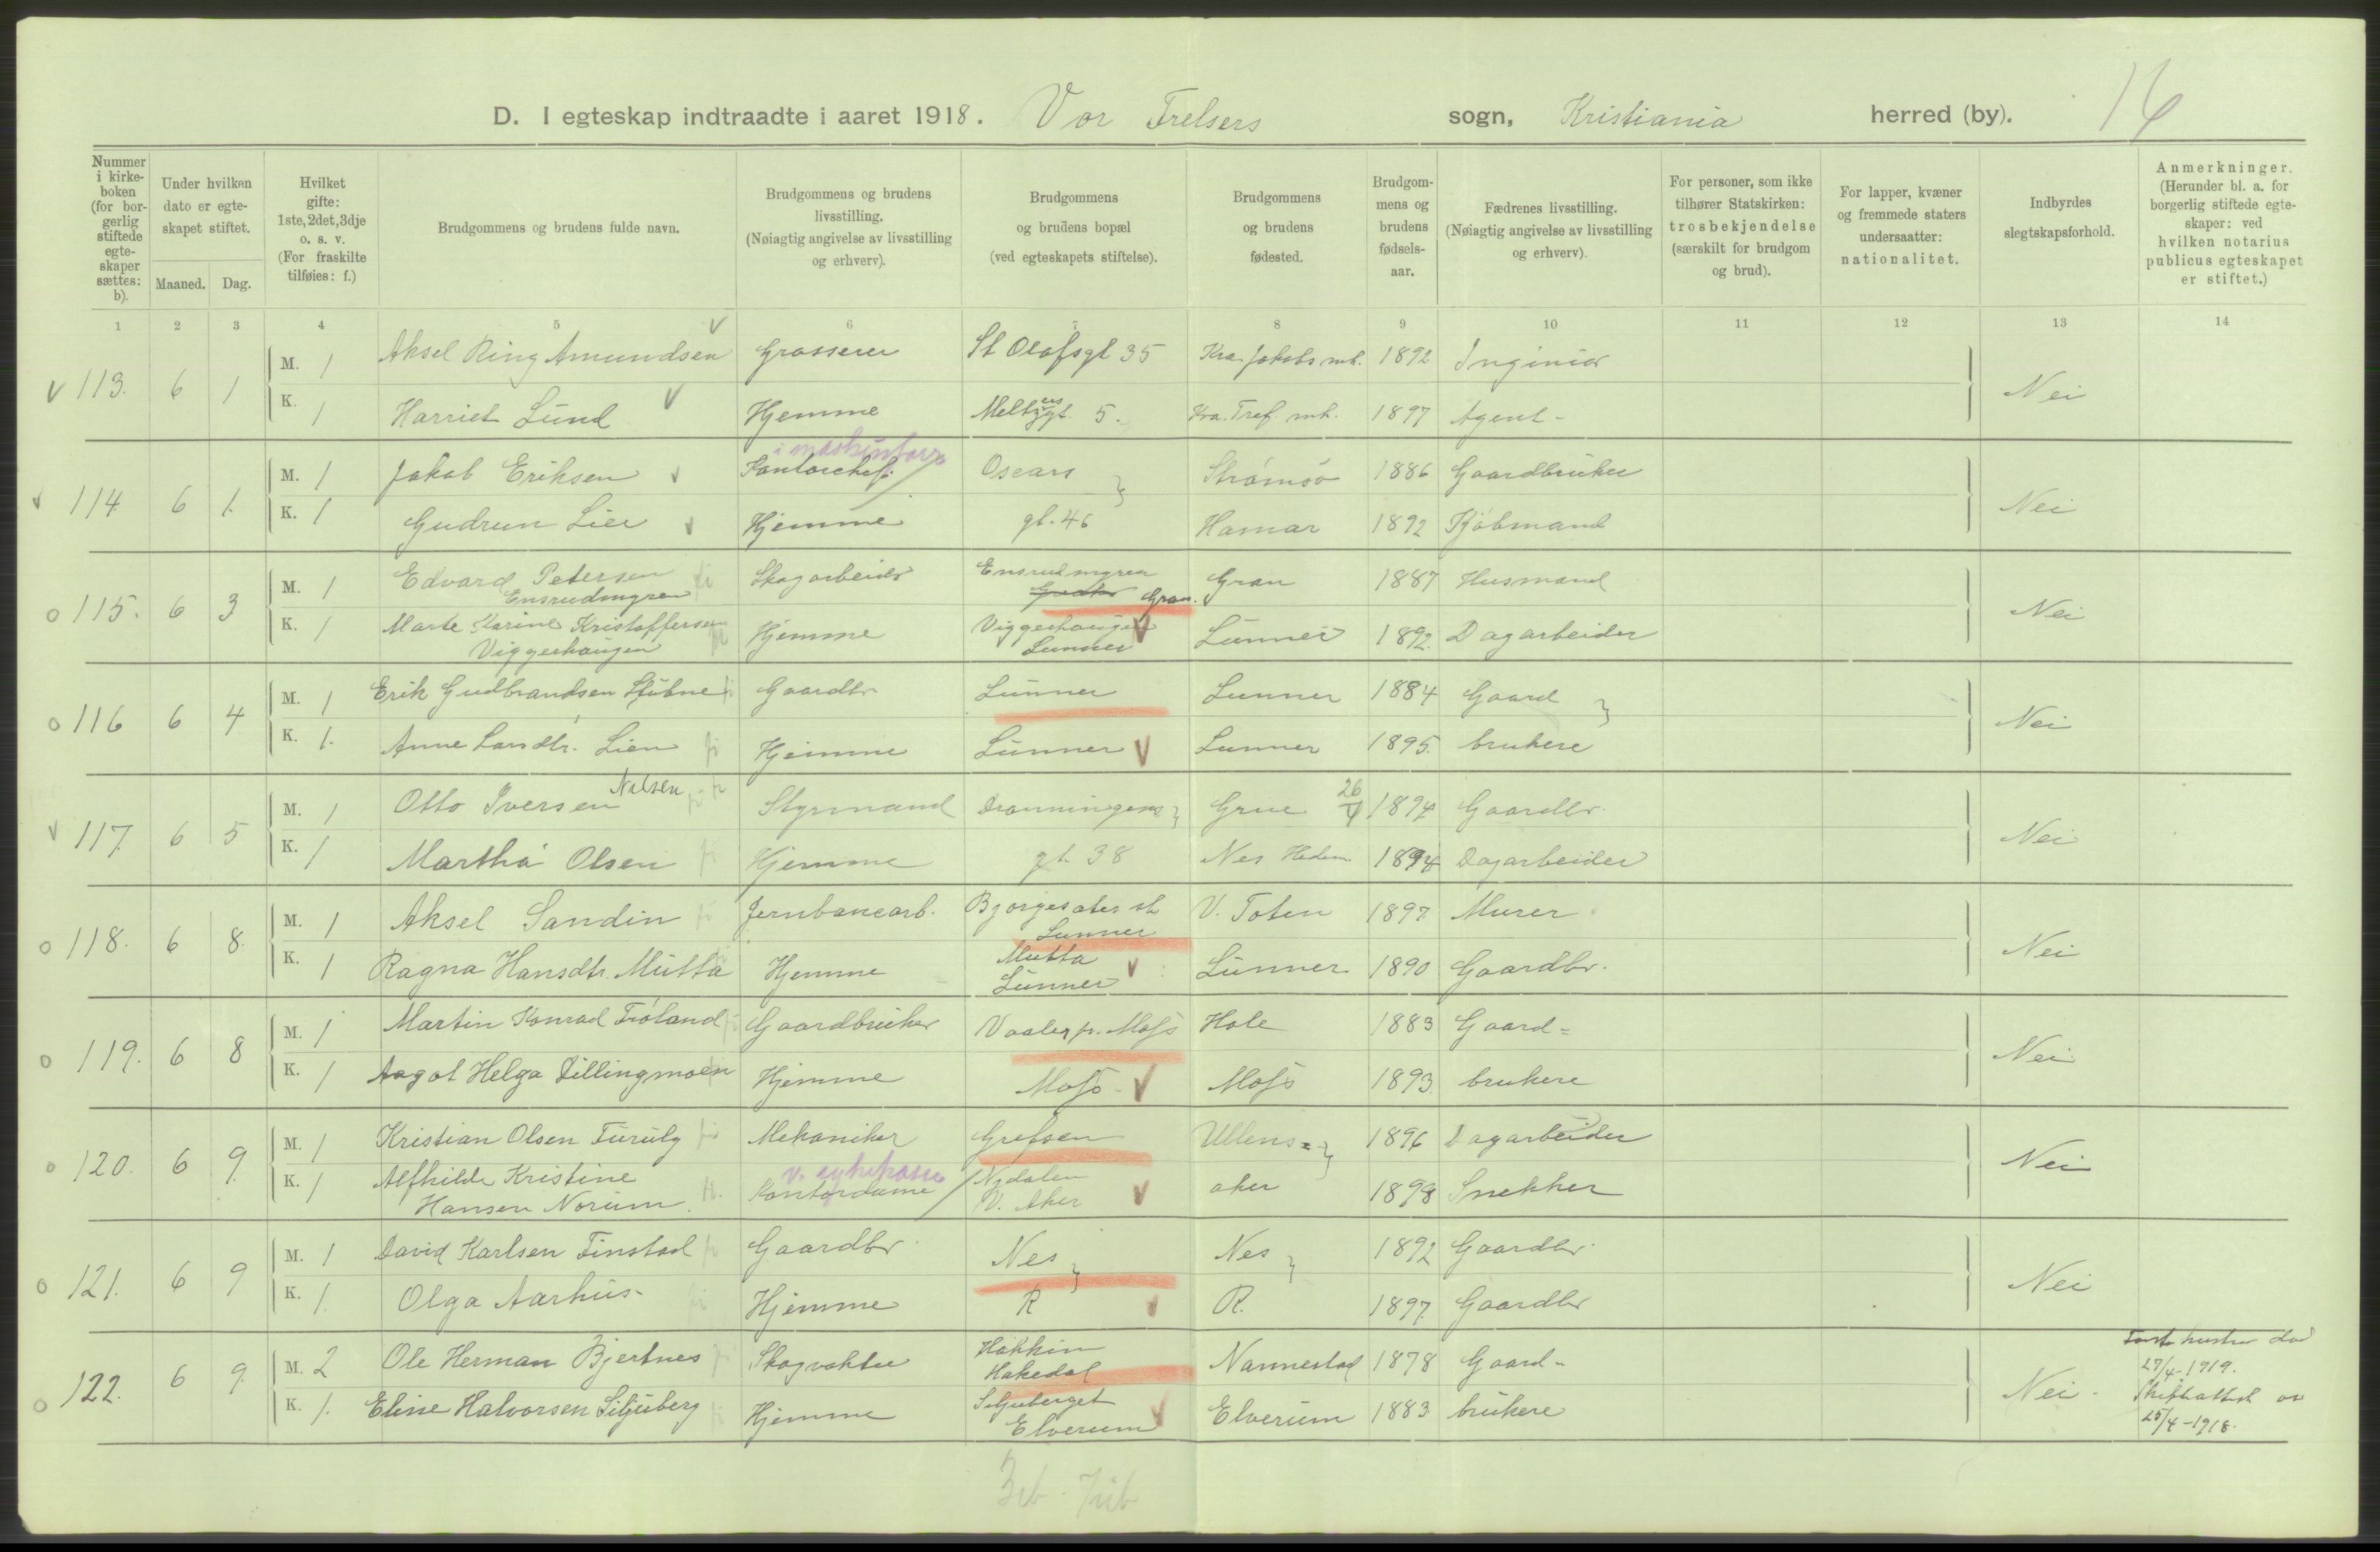 D. I egteskap indtraadte i aaret 1918. Vor Frelsers sogn, Kristiania herred (by). 16
Nummer i kirke-boken (for bor-gerlig stiftede egte-skaper sættes: b).
Under hvilken dato er egte-skapet stiftet.
Maaned. Dag.
Hvilket gifte: 1ste, 2det, 3dje o. s. v. (For fraskilte tilføies: f.)
Brudgommens og brudens fulde navn.
Brudgommens og brudens livsstilling. (Nøiagtig angivelse av livsstilling og erhverv).
Brudgommens og brudens bopæl (ved egteskapets stiftelse).
Brudgommens og brudens fødested.
Brudgom-mens og brudens fødsels-aar.
Fædrenes livsstilling. (Nøiagtig angivelse av livsstilling og erhverv).
For personer, som ikke tilhører Statskirken: trosbekjendelse (særskilt for brudgom og brud).
For lapper, kvæner og fremmede staters undersaatter: nationalitet.
Indbyrdes slegtskapsforhold.
Anmerkninger. (Herunder bl. a. for borgerlig stiftede egte-skaper: ved hvilken notarius publicus egteskapet er stiftet.)
1 2 3 4 5 6 7 8 9 10 11 12 13 14
v 113. 6 1 M. 1 Aksel Ring Amundsen v Grosserer St Olafsgt 35 Kra. Jakobs mh. 1892 Inginiør Nei
K. 1 Harriet Lund v Hjemme Meltzersgt. 5. Kra. Tref. mh. 1897 Agent
v 114 6 1. M. 1 Jakob Eriksen v Kontorchef i maskinforr. Oscars Strømsø 1886 Gaardbruker Nei
K. 1 Gudrun Lier v Hjemme gt. 46 Hamar 1892 Kjøbmand
o 115. 6 3 M. 1 Edvard Petersen Ensrudmyren Skogarbeider Ensrudmyren Gran. Gran 1887 Husmand Nei
K. 1 Marte Karine Kristoffersen Viggerhaugen Hjemme Viggerhaugen Lunner Lunner 1892. Dagarbeider
o 116 6 4 M. 1 Erik Gudbrandsen Stubne Gaardbr Lunner Lunner 1884 Gaard Nei
K. 1. Anne Larsdtr. Lien Hjemme Lunner v Lunner 1895. brukere
v 117. 6 5 M. 1 Otto Iversen Nilsen Styrmand Dronningens Grue 26/4 1894 Gaardbr. Nei
K. 1 Martha Olsen Hjemme gt. 38 Nes Hedm 1894 Dagarbeider
o 118. 6 8. M. 1 Aksel Sandin Jernbanearb. Bjørgesæter st Lunner V. Toten 1897 Murer Nei
K. 1 Ragna Hansdtr. Mutta Hjemme Mutta Lunner v Lunner 1890 Gaardbr.
o 119. 6 8 M. 1 Martin Konrad Frøland Gaardbruker Vaaler p. Moss Hole 1883 Gaard= Nei
K. 1 Aagot Helga Dillingmoen Hjemme Moss - v Moss 1893. brukere
o 120. 6 9. M. 1 Kristian Olsen Furulg Mekaniker Grefsen Ullens= 1896 Dagarbeider Nei
K. 1 Alfhilde Kristine Hansen Norum. Kontordame v. sykekasse Nydalen V. Aker v aker 1898 Snekker
o 121. 6 9 M. 1 David Karlsen Finstad Gaardbr Nes Nes 1892 Gaardbr. Nei
K. 1. Olga Aarhus- Hjemme R v R. 1897. Gaardbr
o 122. 6 9. M. 2 Ole Herman Bjertnes Skogvokter Hakkim Hakedal Nannestad 1878 Gaard- Nei. hustru død 27/4-1919. Skifteattest av 25/4-1918.
K. 1. Eline Halvorsen Siljuberg Hjemme Siljuberget Elverum v Elverum 1883 brukere